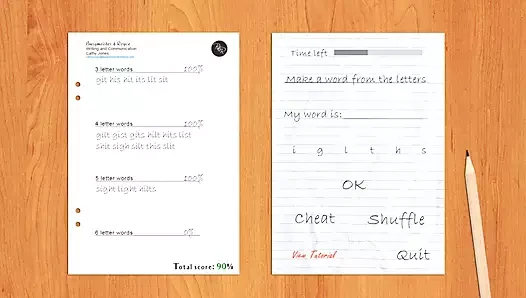 Writing and Communication
Cathy Jones
3 letter words 100%
git his hit its lit sit
4 letter words 100%
gilt gist gits hilt hits list
shit sigh silt this slit
5 letter words 100%
sight light hilts
6 letter words 0%
Total score: 90%
Time left
Make a word from the letters
My word is:
i g l t h s
OK
Cheat Shuffle
View Tutorial Quit